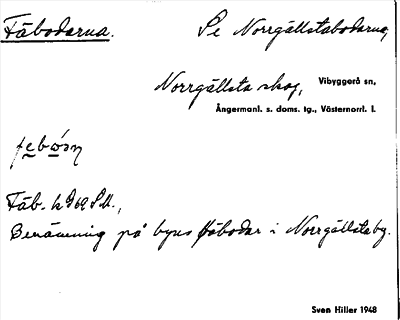 Fäbodarna. Se Norrgällstabodarna,
Norrgällsta skog, Vibyggerå sn,
Ångermanl. s. doms. tg., Västernorrl. l.
Fäb.
Benämning på byns fäbodar i Norrgällsta by.
Sven Hiller 1948